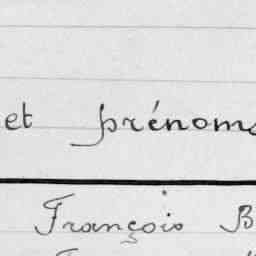 et prénoms
François B